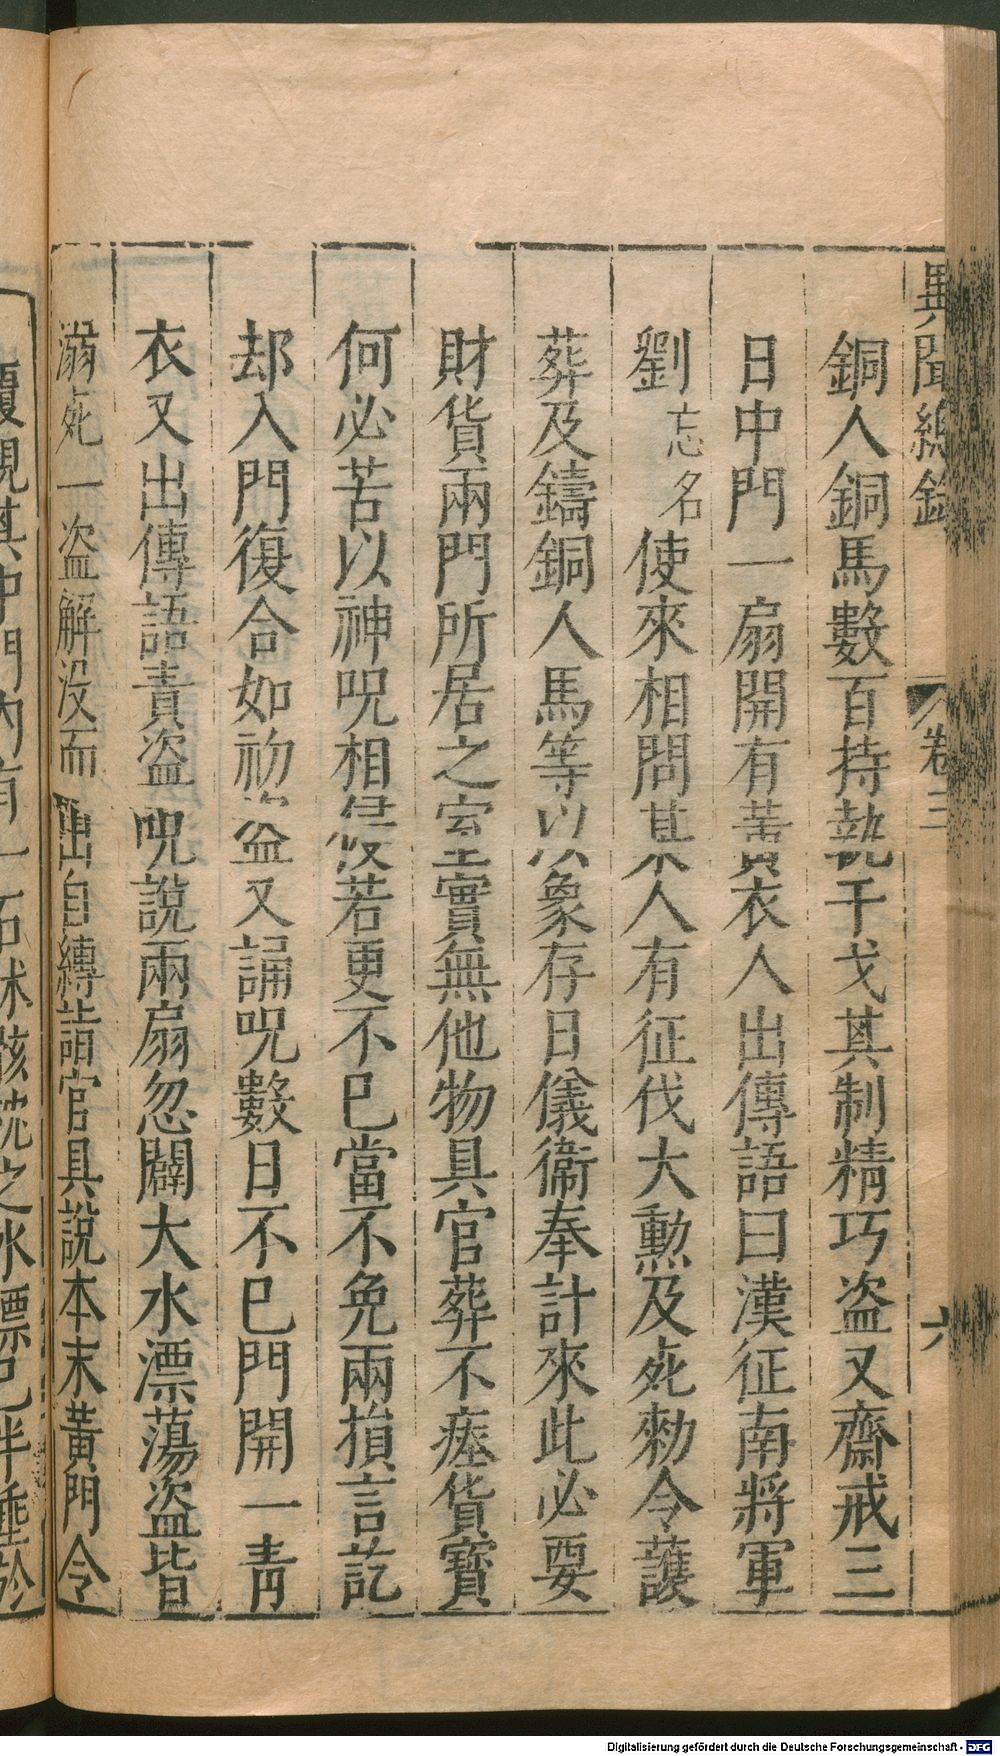 異聞總錄
卷三
六
銅人銅馬數百持執干戈其制精巧盜又齋戒三
日中門一扇開有黃衣人出傳語曰漢征南將軍
劉忘名使來相問某人有征伐大勲及死勑令護
葬及鑄銅人馬等以象存日儀衛奉計來此必要
財貨兩門所居之室實無他物具官葬不瘞貨寶
何必苦以神呪相侵若更不已當不免兩損言訖
却入門復合如初盜又誦呪數日不已門開一青
衣又出傳語責盜呪說兩扇忽闢大水漂蕩盜皆
溺死一盜解没而出自縛詣官具說本末黃門令
覆視其中門內有一石牀骸枕之水漂已半垂於
Digitalisierung gefördert durch die Deutsche Forschungsgemeinschaft - DFG